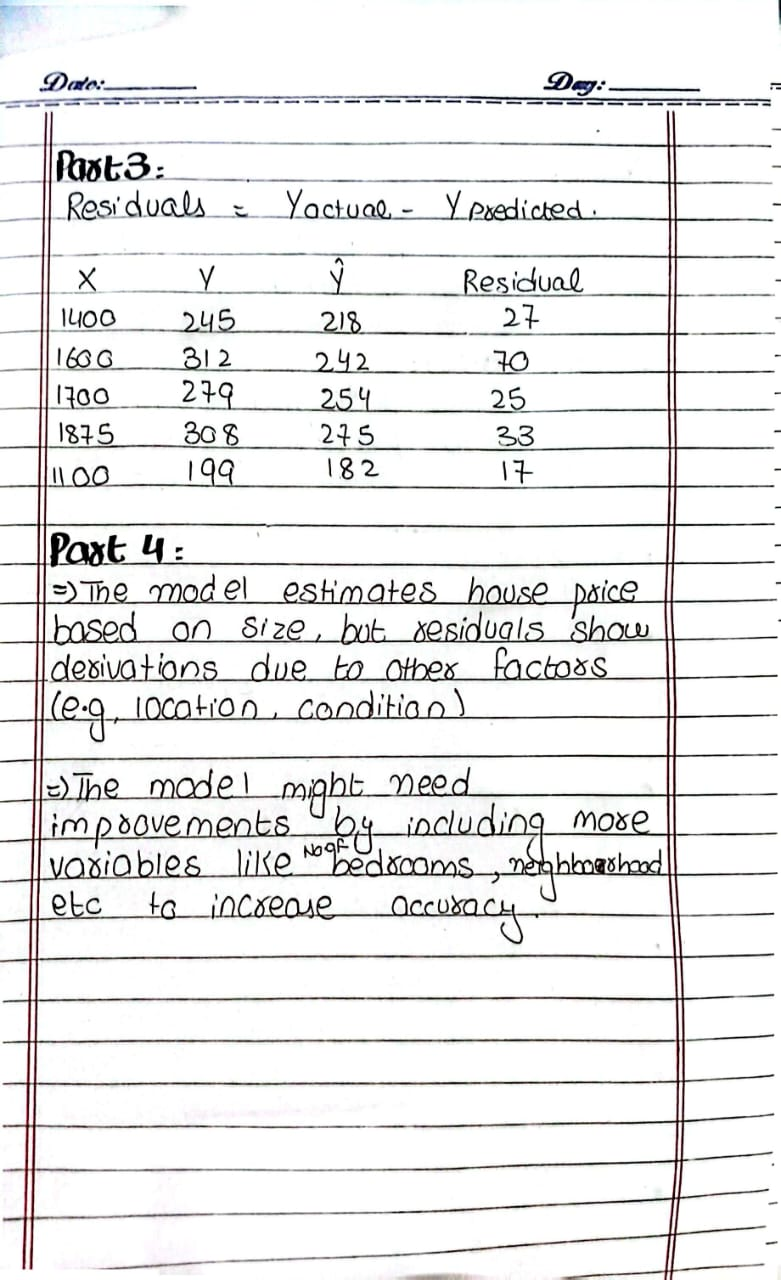 Date:
Day:
Part 3:
Residuals = Yactual - Y predicted.
X Y ŷ Residual
1400 245 218 27
1600 312 242 70
1700 279 254 25
1875 308 275 33
1100 199 182 17
Part 4:
=> The model estimates house price
based on size, but residuals show
derivations due to other factors
(e.g, location, condition)
=> The model might need
improvements by including more
variables like No of bedrooms, neighbourhood
etc to increase accuracy.